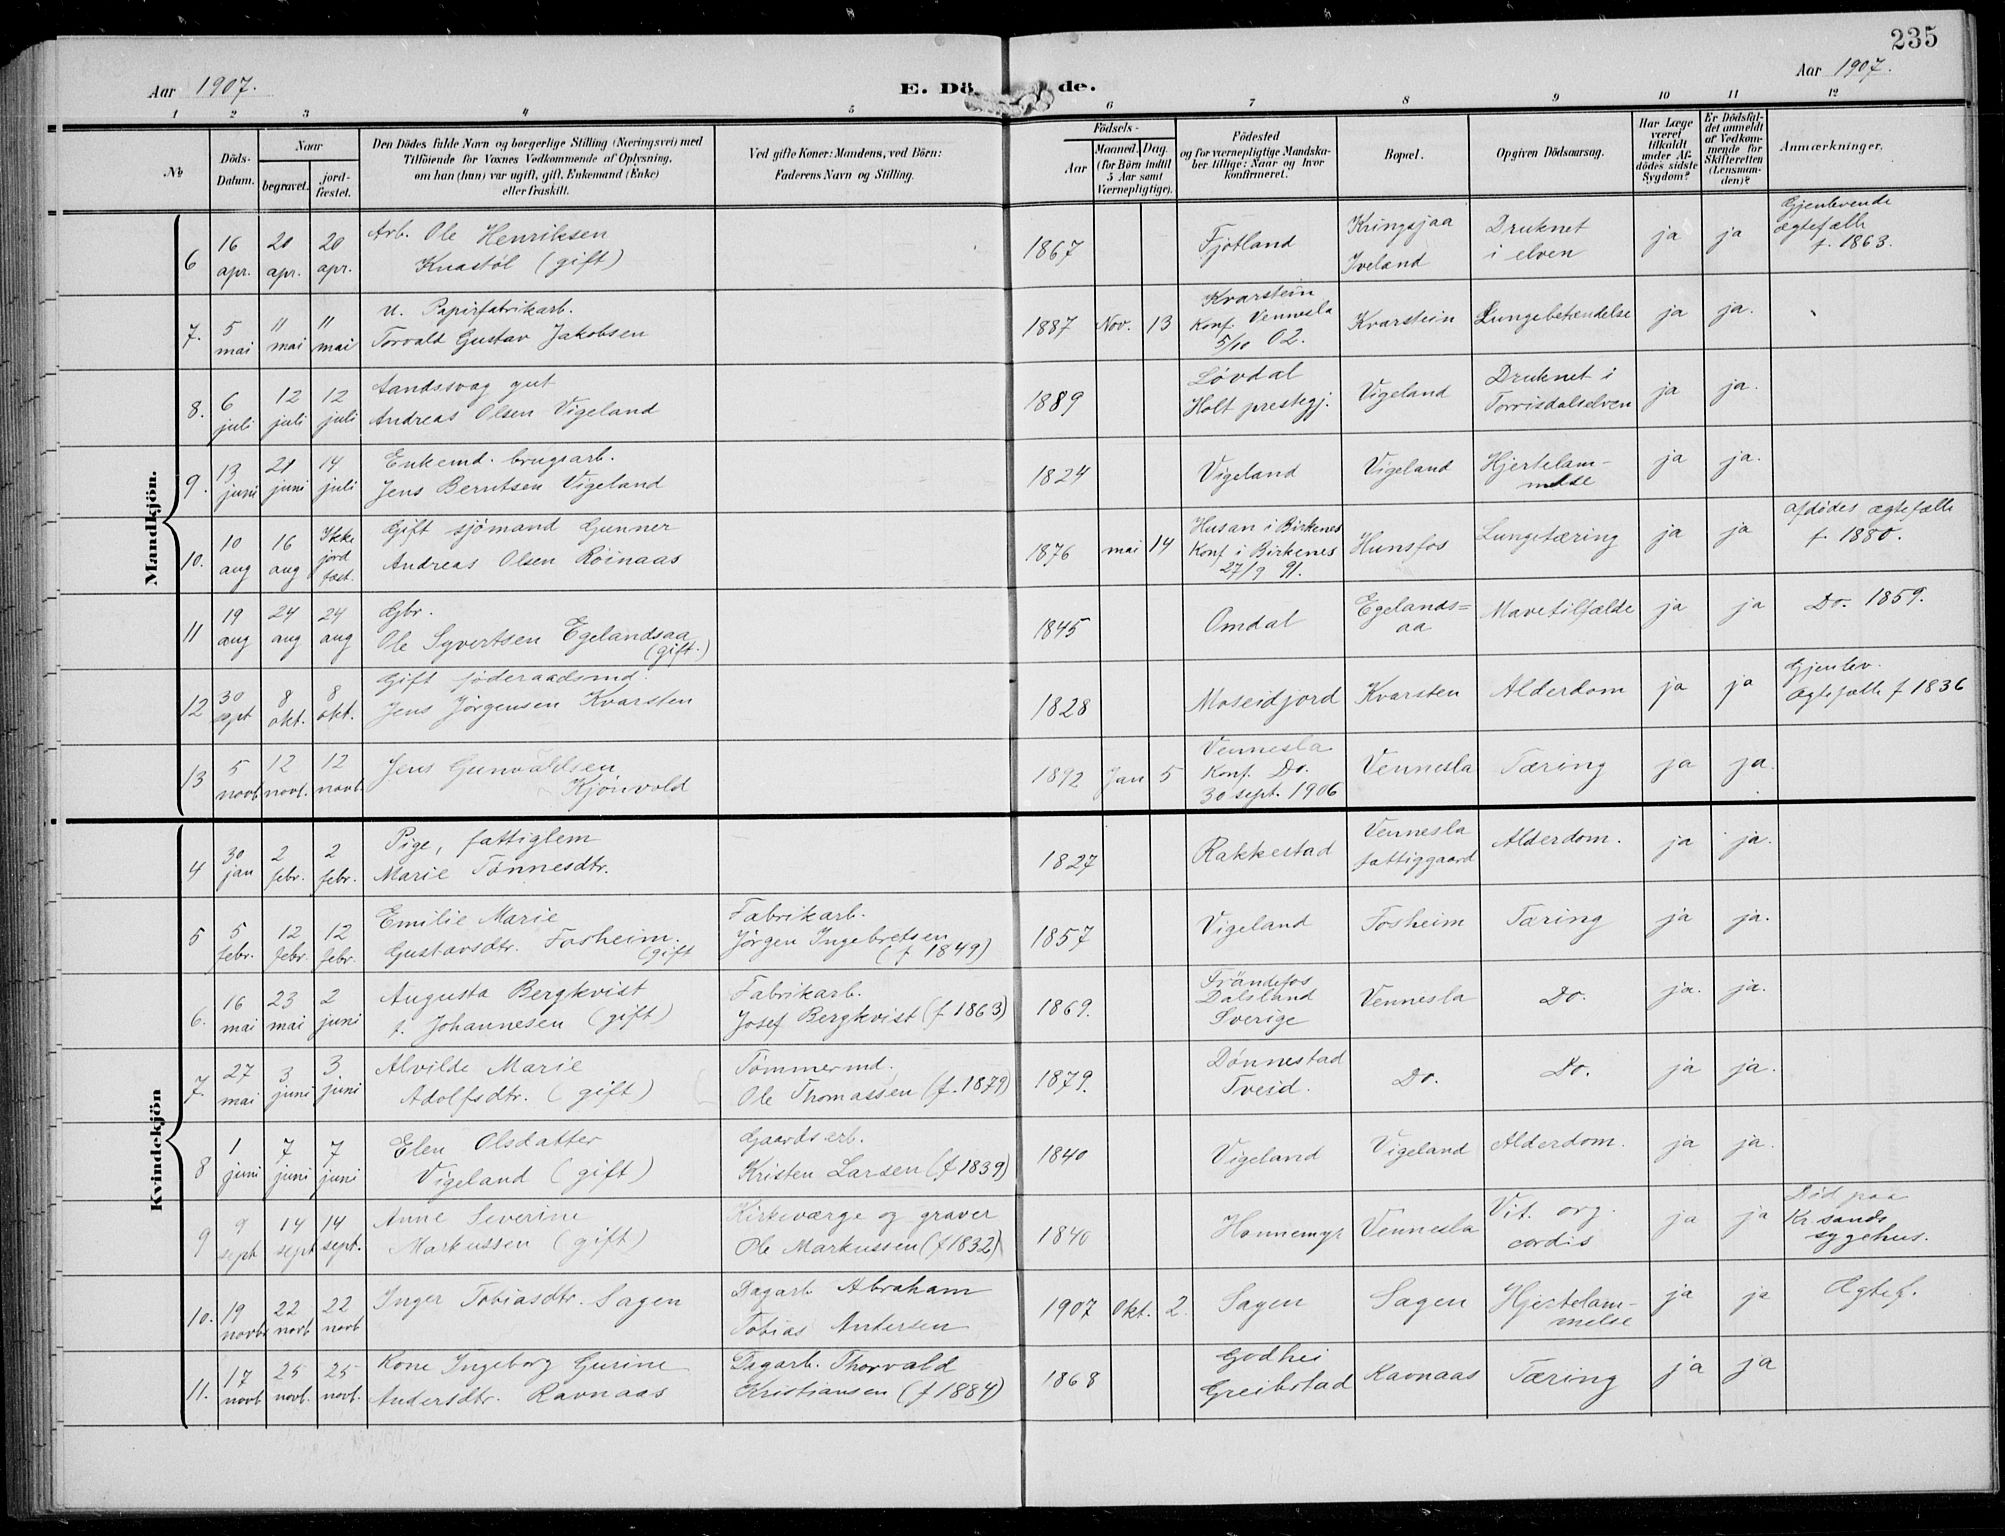 235
Aar 1907.
E. Dö de.
Aar 1907.
1 2 3 4 5 6 7 8 9 10 11 12
No
Döds-Datum.
Naar
begravet.
jord-fæstet.
Den Dödes fulde Navn og borgerlige Stilling (Næringsvei) med
Tilföiende for Voxnes Vedkommende af Oplysning,
om han (hun) var ugift, gift, Enkemand (Enke)
eller fraskilt.
Ved gifte Koner: Mandens, ved Börn:
Faderens Navn og Stilling.
Födsels-
Aar
Maaned. Dag.
(for Börn indtil
5 Aar samt
Værnepligtige).
Födested
og for værnepligtige Mandska-
ber tillige: Naar og hvor
konfirmeret.
Bopæl.
Opgiven Dödsaarsag.
Har Læge
været
tilkaldt
under Af-
dødes sidste
Sygdom?
Er Dödsfal-
det anmeldt
af Vedkom-
mende for
Skifteretten
(Lensman-
den)?
Anmærkninger.
Mandkjön.
6 16 apr. 20 apr. 20 apr. Arb. Ole Henriksen Knastöl (gift) 1867 Fjotland Kringsjaa Iveland Druknet i elven ja ja Gjenlevende ægtefælle f. 1863.
7. 5 mai " mai " mai u. Papirfabrikarb. Torvald Gustav Jakobsen 1887 Nov. 13 Kvarstein Konf. Vennesla 5/10 02. Kvarstein Lungebetændelse ja ja.
8. 6 juli 12 juli 12 juli Aandssvag gut Andreas Olsen Vigeland 1889 Løvdal Holt prestegj. Vigeland Druknet i Torrisdalselven ja ja.
9. 13 juni 21 juni 14 juli Enkemd. brugsarb. Jens Berntsen Vigeland 1824 Vigeland Vigeland Hjertelam-melse ja ja.
10. 10 aug 16 aug Ikke jord fæst. Gift sjömand Gunner Andreas Olsen Röinaas 1876 mai 14 Husan i Birkenes Konf i Birkenes 27/9 91. Hunsfos Lungetæring ja ja afdödes ægtefælle f. 1880.
11 19 aug 24 aug 24 aug Gbr. Ole Syvertsen Egelandsaa (gift.) 1845 Omdal Egelands=aa Mavetilfælde ja ja Do. 1859.
12 30 sept 8 okt. 8 okt. Gift föderaadsmd. Jens Jörgensen Kvarsten 1828 Moseidjord Kvarsten Alderdom ja ja Gjenlev. ægtefælle f 1836
13 5 novb 12 novb. 12 novb Jens Gunvaldsen Kjönvold 1892 Jan 5 Vennesla Konf. Do. 30 sept. 1906 Vennesla Tæring ja ja.
Kvindekjön
4 30 jan 2 febr. 2 febr. Pige, fattiglem Marie Tönnesdtr. 1827 Rakkestad Vennesla fattiggaard Alderdom. ja ja.
5 5 febr. 12 febr. 12 febr. Emilie Marie Gustavsdtr. Fosheim. (gift Fabrikarb. Jörgen Ingebretsen (f 1849) 1857 Vigeland Fosheim Tæring ja ja.
6. 16 mai 23 mai 2 juni Augusta Bergkvist f. Johannesen (gift) Fabrikarb. Josef Bergkvist (f 1863) 1869. Frändefos Dalsland Sverige Vennesla Do. ja. ja.
7. 27 mai 3 juni 3 juni Alvilde Marie Adolfsdtr. (gift) Tömmermd. Ole Thomassen (f. 1879) 1879. Dönnestad Tveid. Do. Do. ja ja.
8 1 juni 7 juni 7 juni Elen Olsdatter Vigeland (gift) Gaardsarb. Kristen Larsen (f 1839) 1840 Vigeland Vigeland Alderdom. ja ja.
9 9 sept 14 sept 14 sept. Anne Severine Markussen (gift) Kirkeværge og graver Ole Markussen (f 1832) 1840 Hannemyr Vennesla Vit. org. cordis ja ja Död paa Kr.sands sygehus.
10. 19 novb 22 novb 22 novb Inger Tobiasdtr. Sagen Dagarb Abraham Tobias Andersen 1907 Okt. 2. Sagen Sagen Hjertelam-melse ja ja Ægtef.
11. 17 novb 25 novb. 25 novb. Kone Ingeborg Gurine Andersdtr. Ravnaas Dagarb. Thorvald Kristiansen (f 1884) 1868 Godhei Greibstad Ravnaas Tæring ja ja